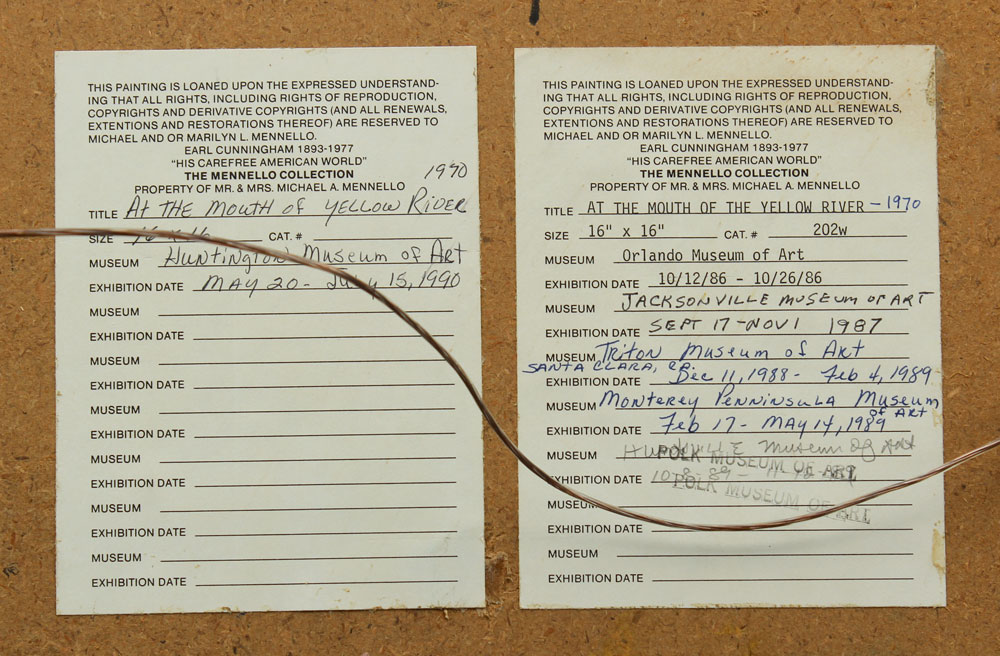 THIS PAINTING IS LOANED UPON THE EXPRESSED UNDERSTAND-
ING THAT ALL RIGHTS, INCLUDING RIGHTS OF REPRODUCTION,
COPYRIGHTS AND DERIVATIVE COPYRIGHTS (AND ALL RENEWALS,
EXTENTIONS AND RESTORATIONS THEREOF) ARE RESERVED TO
MICHAEL AND OR MARILYN L. MENNELLO.
EARL CUNNINGHAM 1893-1977
"HIS CAREFREE AMERICAN WORLD"
THE MENNELLO COLLECTION
1970
PROPERTY OF MR. & MRS. MICHAEL A. MENNELLO
TITLE At THE MOUTH of YELLOW RIVER
SIZE 16 x 16 CAT. #
MUSEUM Huntington Museum of Art
EXHIBITION DATE MAY 20 - July 15, 1990
MUSEUM
EXHIBITION DATE
MUSEUM
EXHIBITION DATE
MUSEUM
EXHIBITION DATE
MUSEUM
EXHIBITION DATE
MUSEUM
EXHIBITION DATE
MUSEUM
EXHIBITION DATE
THIS PAINTING IS LOANED UPON THE EXPRESSED UNDERSTAND-
ING THAT ALL RIGHTS, INCLUDING RIGHTS OF REPRODUCTION,
COPYRIGHTS AND DERIVATIVE COPYRIGHTS (AND ALL RENEWALS,
EXTENTIONS AND RESTORATIONS THEREOF) ARE RESERVED TO
MICHAEL AND OR MARILYN L. MENNELLO.
EARL CUNNINGHAM 1893-1977
"HIS CAREFREE AMERICAN WORLD"
THE MENNELLO COLLECTION
PROPERTY OF MR. & MRS. MICHAEL A. MENNELLO
TITLE AT THE MOUTH OF THE YELLOW RIVER - 1970
SIZE 16" x 16" CAT. # 202w
MUSEUM Orlando Museum of Art
EXHIBITION DATE 10/12/86 - 10/26/86
MUSEUM JACKSONVILLE MUSEUM OF ART
EXHIBITION DATE SEPT 17 - NOV 1 1987
MUSEUM Triton Museum of Art
SANTA CLARA, CA.
EXHIBITION DATE Dec 11, 1988 - Feb 4, 1989
MUSEUM Monterey Penninsula Museum
of Art
EXHIBITION DATE Feb 17 - MAY 14, 1989
MUSEUM Museum of Art
POLK MUSEUM OF ART
EXHIBITION DATE
POLK MUSEUM OF ART
MUSEUM
EXHIBITION DATE
MUSEUM
EXHIBITION DATE